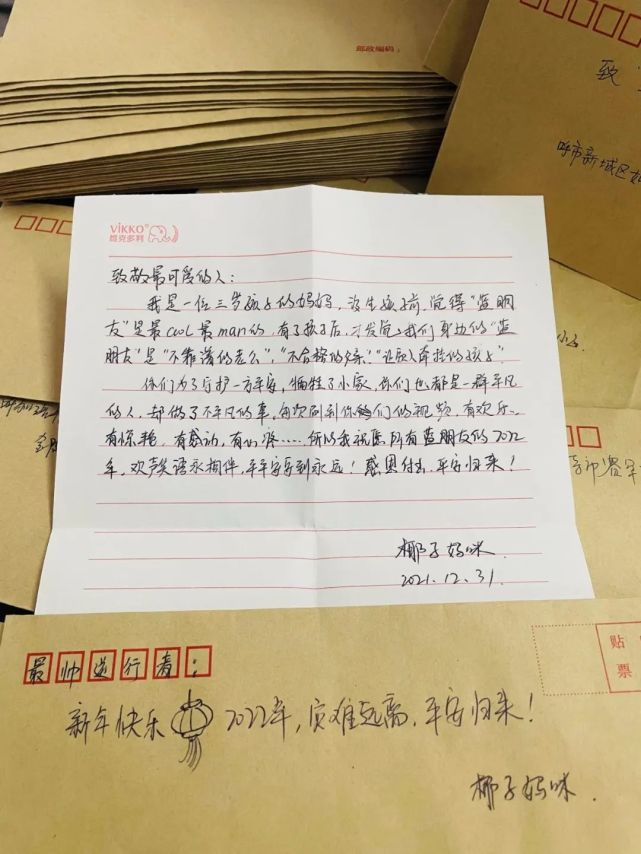 邮政编码：
致
呼市新城区
VIKKO®
维克多利
致敬最可爱的人：
我是一位三岁孩子的妈妈，没生孩子前，觉得“蓝朋
友”是最cool最man的，有了孩子后，才发觉，我们身边的“蓝
朋友”是“不靠谱的老公”，“不合格的父亲”，“让家人牵挂的孩子”。
你们为了守护一方平安，牺牲了小家，你们也都是一群平凡
的人，却做了不平凡的事，每次刷到你们的视频，有欢乐、
有惊艳，有感动，有心疼……所以我祝愿所有蓝朋友的2022
年，欢声笑语永相伴，平平安安到永远！感恩付出，平安归来！
椰子妈咪
2021.12.31.
最帅逆行者：
新年快乐 2022年，灾难远离，平安归来！
椰子妈咪.
贴
票